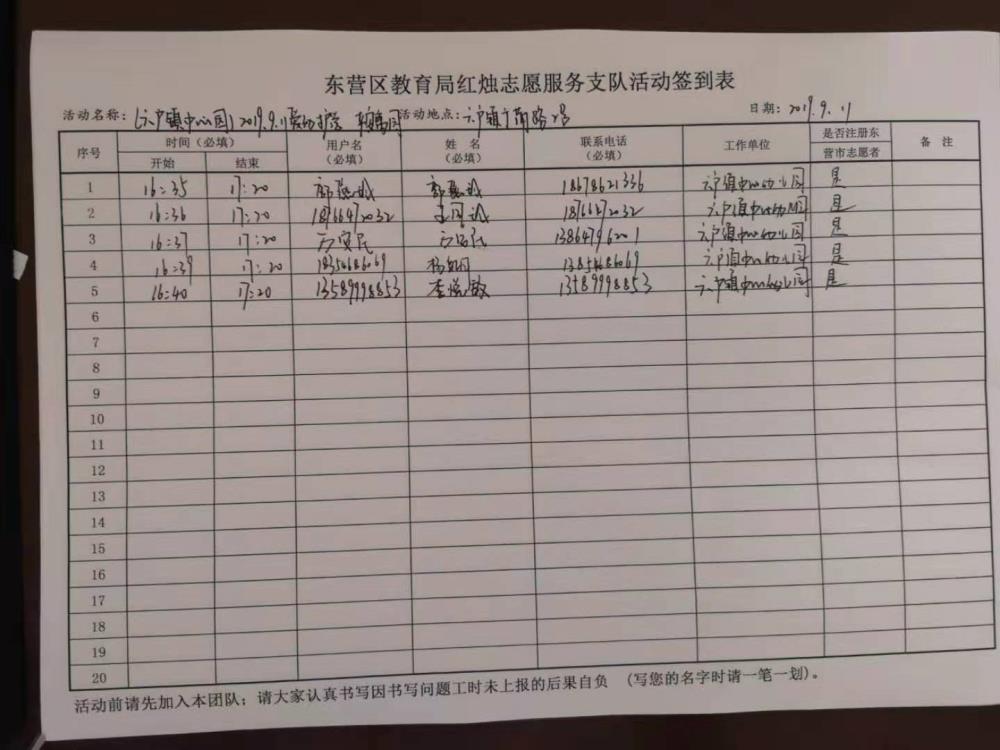 东营区教育局红烛志愿服务支队活动签到表
活动名称：(六户镇中心园) 2019.9.11 活动地点：六户镇广前路2号 日期：2019.9.11
序号 时间（必填） 用户名（必填） 姓 名（必填） 联系电话（必填） 工作单位 是否注册东营市志愿者 备 注
开始 结束
1 16:35 17:20 18678621336 六户镇中心幼儿园 是
2 16:36 17:20 六户镇中心幼儿园 是
3 16:37 17:20 13864796201 六户镇中心幼儿园 是
4 16:39 17:20 13854686069 六户镇中心幼儿园 是
5 16:40 17:20 13589998853 李悦敏 13589998853 六户镇中心幼儿园 是
6
7
8
9
10
11
12
13
14
15
16
17
18
19
20
活动前请先加入本团队；请大家认真书写因书写问题工时未上报的后果自负 （写您的名字时请一笔一划）。